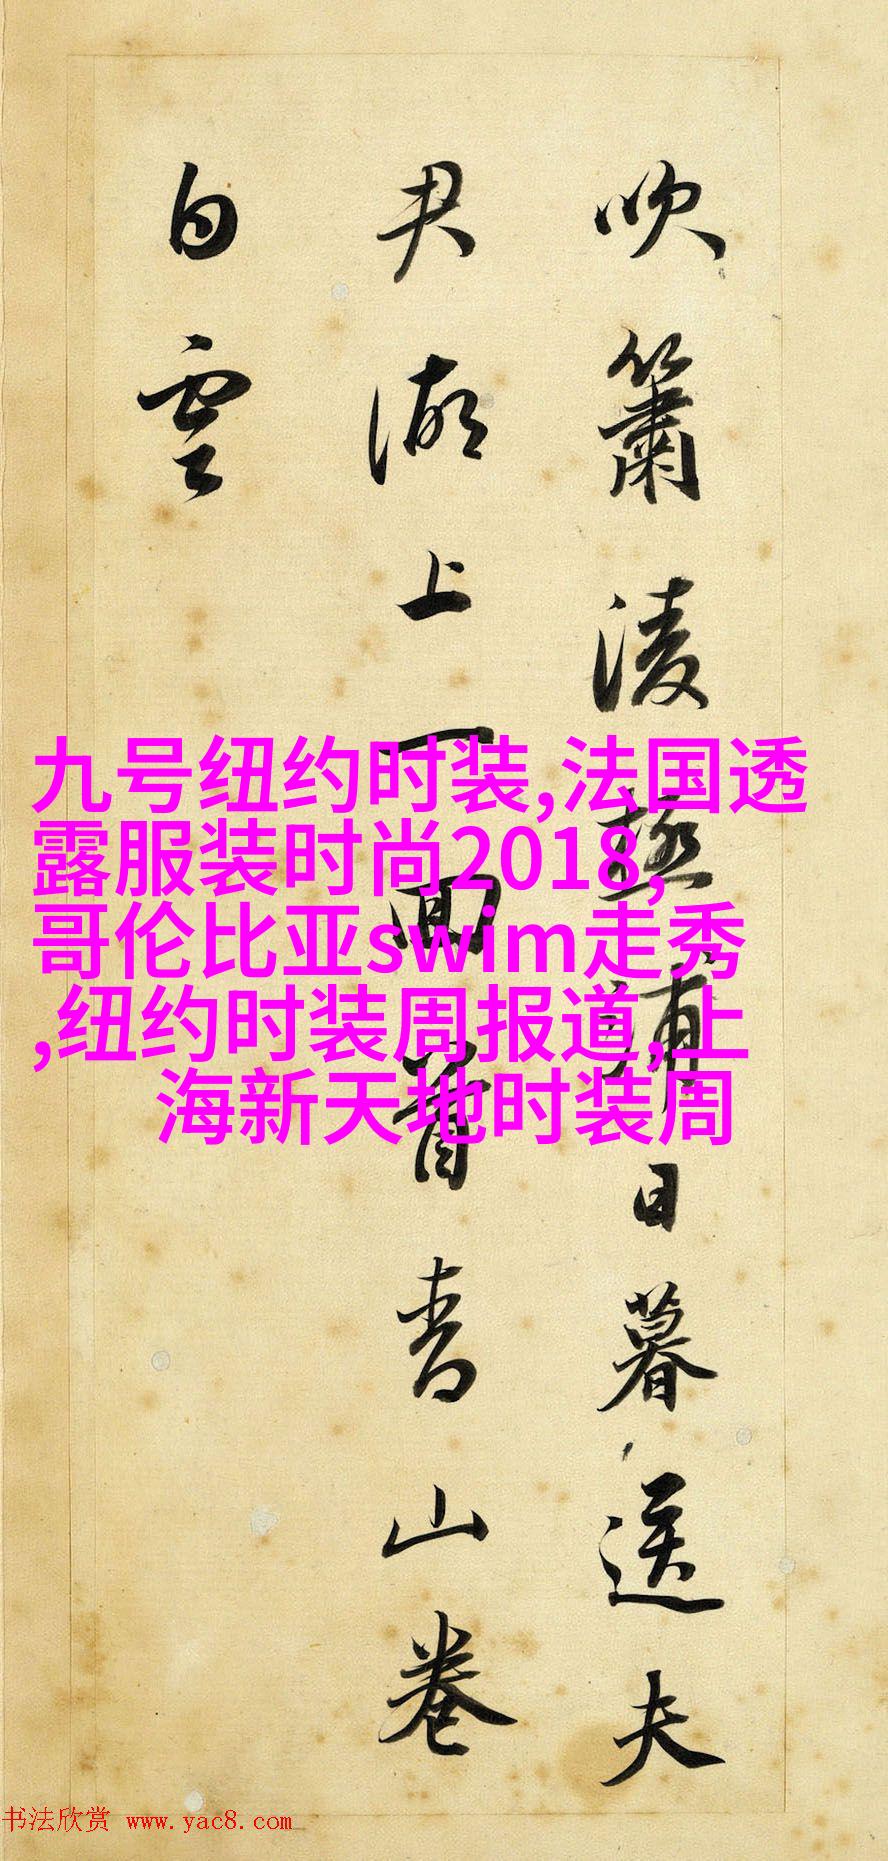 吹簫淩極浦日暮送夫
君湖上一回首青山卷
白雲
九号纽约时装,法国透
露服装时尚2018,
哥伦比亚swim走秀
,纽约时装周报道,上
海新天地时装周
书法欣赏 www.yac8.com